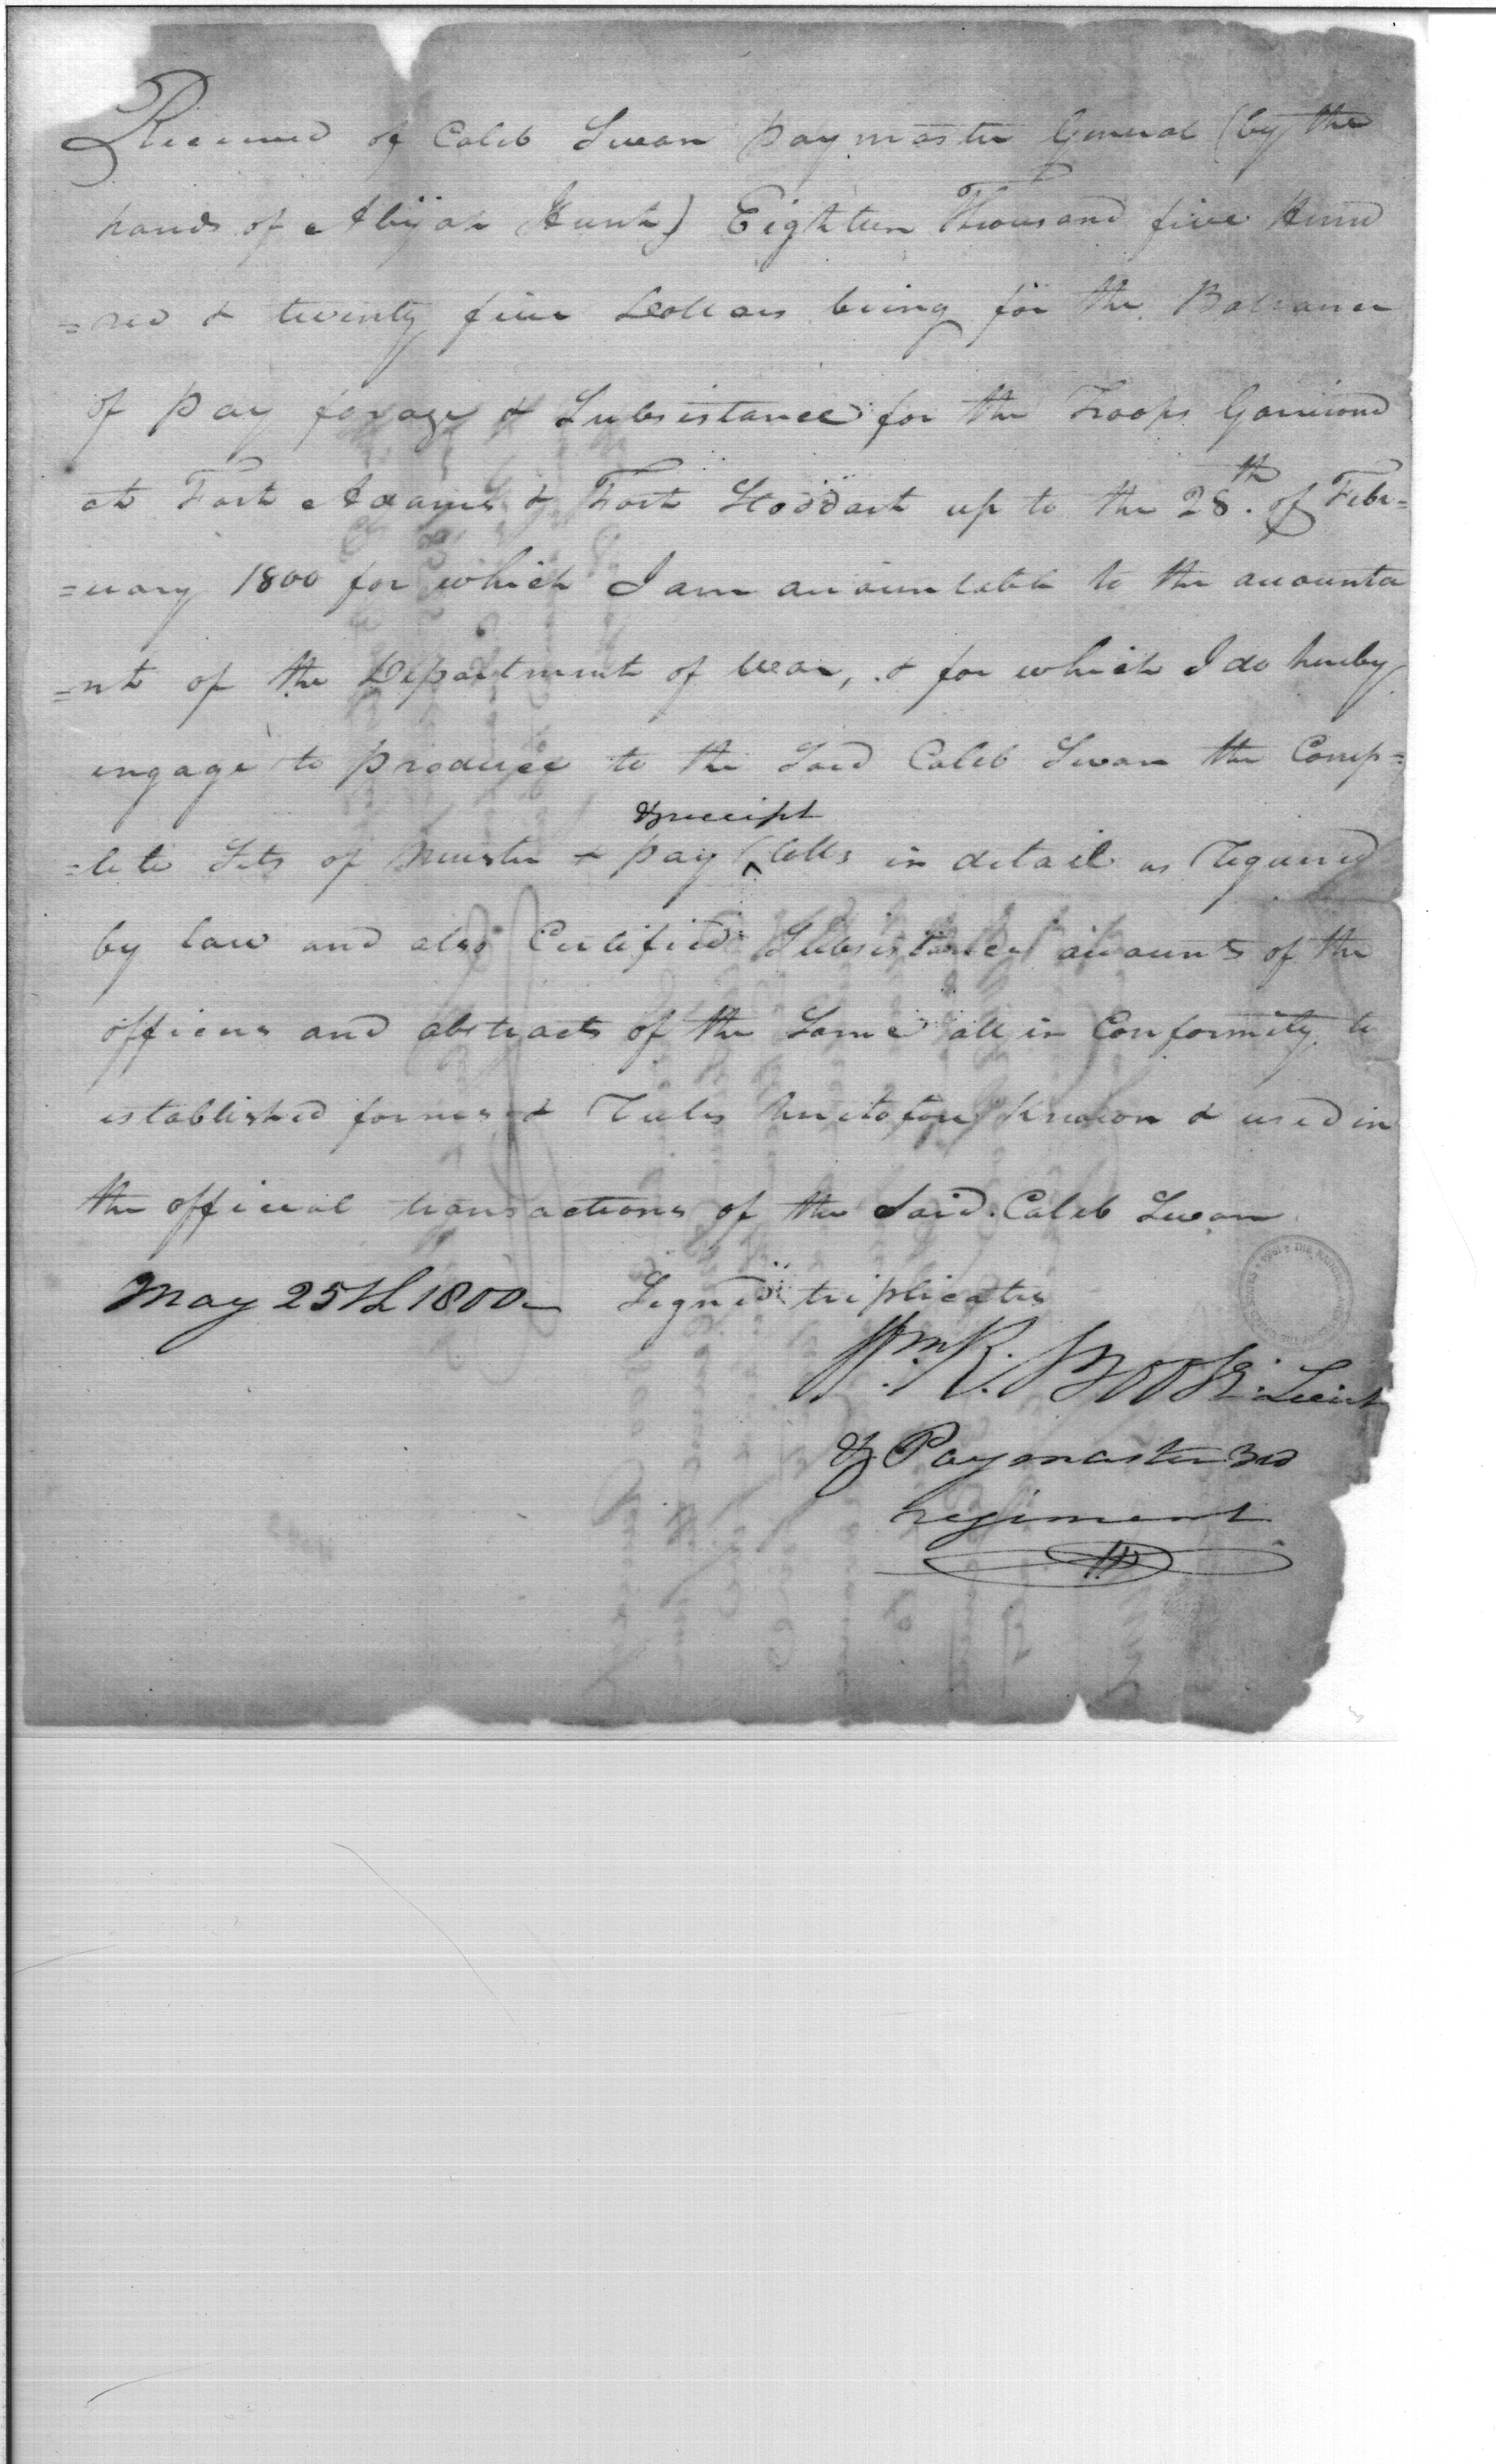 Received of Caleb Swan paymaster General (by the
hands of Abijah Hunt) Eighteen Thousand five Hund
=red & twenty five Dollars being for the Ballance
of pay forage & Subsistance for the Troops Garrisond
at Fort Adams & Fort Stoddart up to the 28th. of Febr=
=uary 1800 for which I am accountable to the accounta
=nt of the Department of War, & for which I do hereby
engage to produce to the Said Caleb Swan the Comp=
& receipt
=lete Sets of Muster & pay ^ Rolls in detail as required
by law and also Certified Subsistance accounts of the
officers and abstracts of the Same all in Conformity to
established forms & Rules heretofore Known & used in
the official transactions of the Said Caleb Swan
May 25th 1800 Signed triplicates
Wm. R. Boote Lieut
& Paymaster 3rd
regiment